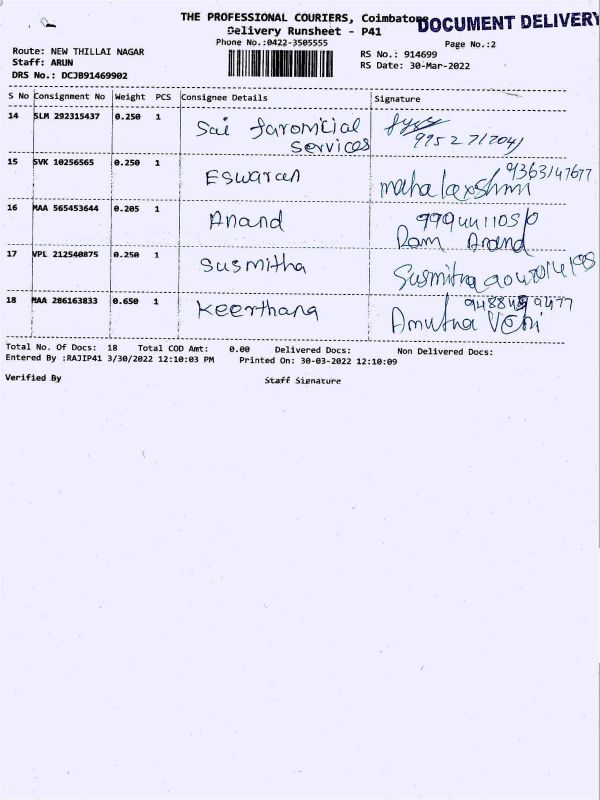 THE PROFESSIONAL COURIERS, Coimbatore
DOCUMENT DELIVERY
Delivery Runsheet - P41
Phone No.:0422-3505555
Page No.:2
Route: NEW THILLAI NAGAR
Staff: ARUN
DRS No.: DCJB91469902
RS No.: 914699
RS Date: 30-Mar-2022
S No Consignment No Weight PCS Consignee Details Signature
14 SLM 292315437 0.250 1 Sai
Services
15 SVK 10256565 0.250 1 Eswaran 9363147677
mahalaxshmi
16 MAA 565453644 0.205 1 Anand
Ram Anand
17 VPL 212540875 0.250 1 Susmitha Susmitha
18 MAA 286163833 0.650 1 Keerthana
Amutha
Total No. Of Docs: 18 Total COD Amt: 0.00 Delivered Docs: Non Delivered Docs:
Entered By :RAJIP41 3/30/2022 12:10:03 PM Printed On: 30-03-2022 12:10:09
Verified By Staff Signature